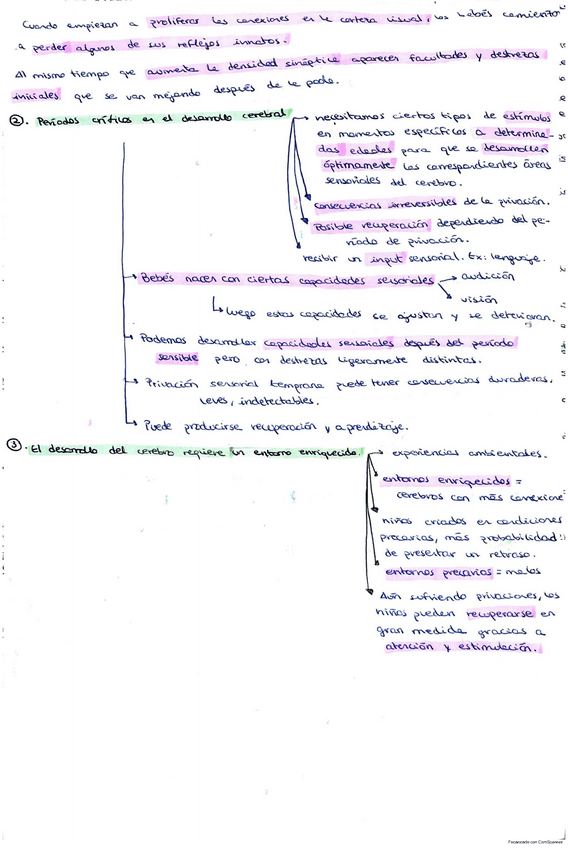 Cuando empiezan a proliferar las conexiones en la corteza visual, los bebés comienzan
a perder algunos de sus reflejos innatos.
Al mismo tiempo que aumenta la densidad sináptica aparecen facultades y destrezas
iniciales que se van mejorando después de la poda.
②. Periodos críticos en el desarrollo cerebral
→ necesitamos ciertos tipos de estímulos
en momentos específicos a determina-
das edades para que se desarrollen
óptimamente las correspondientes áreas
sensoriales del cerebro.
consecuencias irreversibles de la privación.
Posible recuperación dependiendo del pe-
riodo de privación.
recibir un input sensorial. Ex: lenguaje.
→ Bebés nacen con ciertas capacidades sensoriales → audición
visión
↳ luego estas capacidades se ajustan y se deterioran.
→ Podemos desarrollar capacidades sensoriales después del periodo
sensible pero con destrezas ligeramente distintas.
→ Privación sensorial temprana puede tener consecuencias duraderas,
leves, indetectables.
→ Puede producirse recuperación y aprendizaje.
③. El desarrollo del cerebro requiere un entorno enriquecido.
→ experiencias ambientales.
entornos enriquecidos =
cerebros con más conexione
niños criados en condiciones
precarias, más probabilidad
de presentar un retraso.
entornos precarios = malos
Aún sufriendo privaciones, los
niños pueden recuperarse en
gran medida gracias a
atención y estimulación.
Escaneado con CamScanner